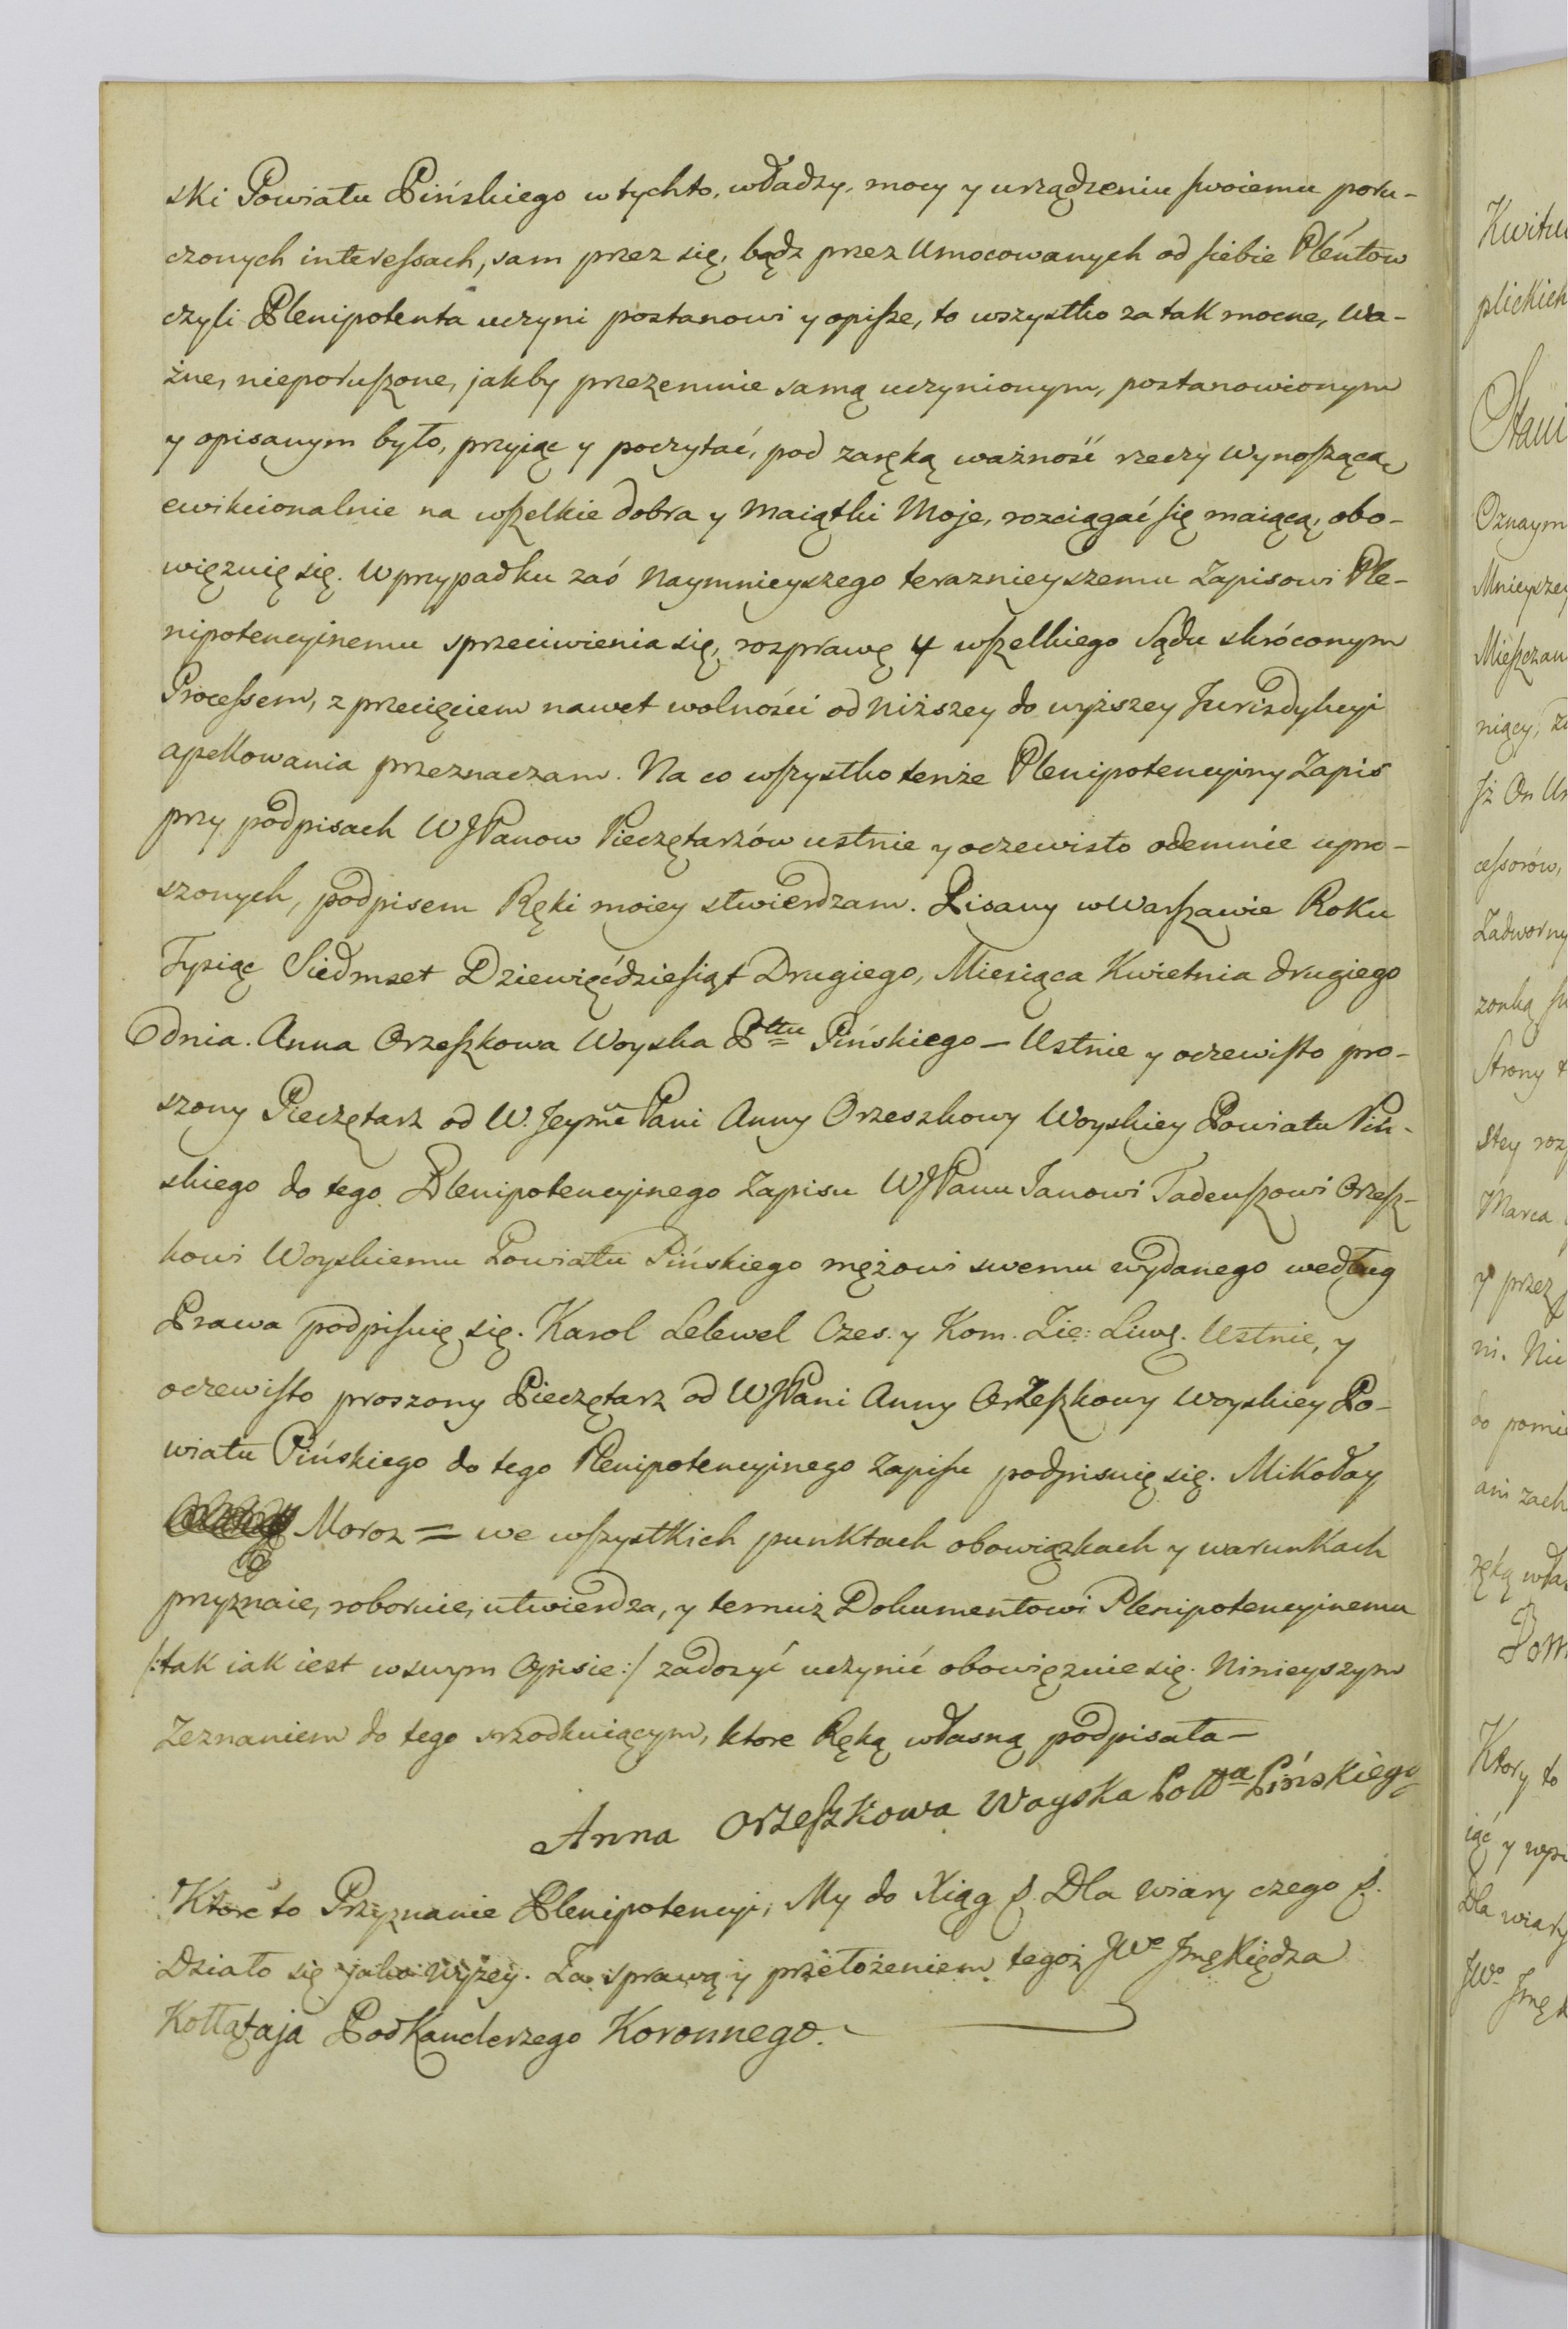 ski Powiatu Pińskiego w tychto, władzy, mocy y urządzeniu swoiemu poru-
czonych interessach, sam przez się, bądz przez Umocowanych od siebie Plentow
czyli Plenipotenta uczyni postanowi y opisze, to wszystko za tak mocne, wa-
żne, nieporuszone, jakby przezemnie samą uczynionym, postanowionym
y opisanym było, przyiąc y poczytać, pod zaręką ważność rzeczy wynoszącą
ewikcionalnie na wszelkie dobra y maiątki Moje, rozciągać się maiącą, obo-
więzuię się. W przypadku zaś Naymnieyszego teraznieyszemu Zapisowi Ple-
nipotencyinemu sprzeciwienia się, rozprawę u wszelkiego Sądu skróconym
Processem, z przecięciem nawet wolności od Niższey do wyższey Jurizdykcyi
apellowania przeznaczam. Na co wszystko tenże Plenipotencyiny Zapis
przy podpisach WJPanow Pieczętarzów ustnie y oczewisto odemnie upro-
szonych, podpisem Ręki moiey stwierdzam. Pisany w Warszawie Roku
Tysiąc Siedmset Dziewięćdziesiąt Drugiego, Miesiąca Kwietnia drugiego
dnia. Anna Orzeszkowa Woyska Pttu Pińskiego — Ustnie y oczewisto pro-
szony Pieczętarz od W. Jeymć Pani Anny Orzeszkowy Woyskiey Powiatu Piń-
skiego do tego Plenipotencyinego Zapisu WJPanu Janowi Tadeuszowi Orzesz-
kowi Woyskiemu Powiatu Pińskiego mężowi swemu wydanego według
Prawa podpisuię się. Karol Lelewel Czes. y Kom. Zie: Liwś. Ustnie, y
oczewisto proszony Pieczętarz od WJPani Anny Orzeszkowy Woyskiey Po-
wiatu Pińskiego do tego Plenipotencyinego Zapisu podpisuię się. Mikołay
Moroz = we wszystkich punktach obowiązkach y warunkach
przyznaie, roboruie, utwierdza, y temuż Dokumentowi Plenipotencyinemu
/:tak iak iest w swym Opisie:/ zadosyć uczynić obowięzuie się. Ninieyszym
Zeznaniem do tego srzodkuiącym, ktore Ręką własną podpisała —
Anna Orzeszkowa Woyska Powtta Pińskiego
Ktore to Przyznanie Plenipotencyi, My do Xiąg p. Dla wiary czego p.
Działo się jako wyżey. Za sprawą y przełożeniem tegoż JWo Jmę Xiędza
Kołłątaja PodKanclerzego Koronnego.
Kwitu
plickich
Stani
Oznaym
Mnieysze
Mieszczan
niący, 
Jż On 
cessorów,
Zadworny
zonką
Strony
stey roz
Marca
y przez
ni. Nie
do pomie
ani zach
ręką wła
Pom
Ktory to
iąc y wpi
Dla wiary
JWo Jmę